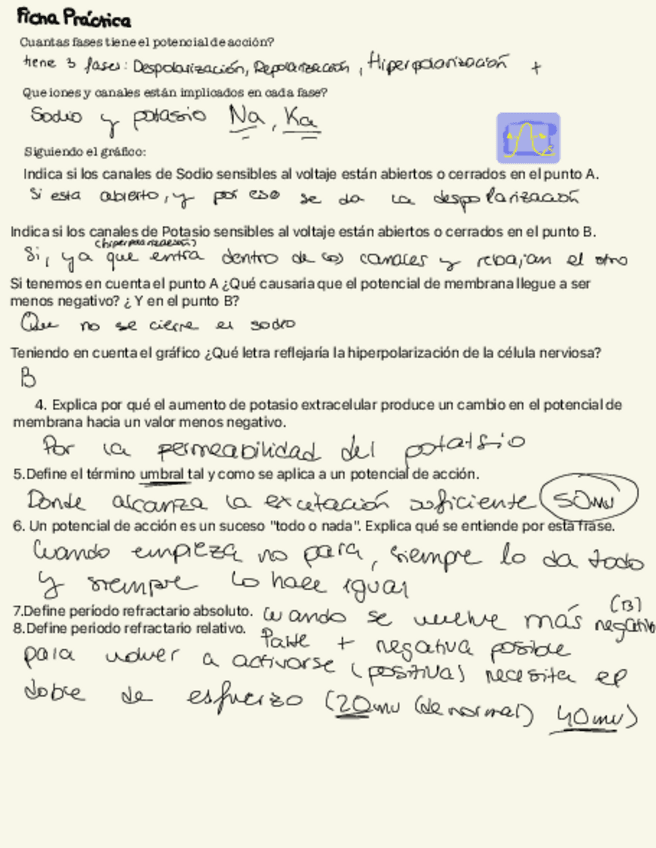 Ficha Práctica
Cuantas fases tiene el potencial de acción?
tiene 3 fases: Despolarización, Repolarización, Hiperpolarización +
Que iones y canales están implicados en cada fase?
Sodio y potasio Na, Ka
Siguiendo el gráfico:
Indica si los canales de Sodio sensibles al voltaje están abiertos o cerrados en el punto A.
Si esta abierto, y por eso se da la despolarización
Indica si los canales de Potasio sensibles al voltaje están abiertos o cerrados en el punto B.
(hiperpolarización)
Si, ya que entra dentro de los canales y rebajan el otro
Si tenemos en cuenta el punto A ¿Qué causaria que el potencial de membrana llegue a ser
menos negativo? ¿ Y en el punto B?
Que no se cierre el sodio
Teniendo en cuenta el gráfico ¿Qué letra reflejaría la hiperpolarización de la célula nerviosa?
B
4. Explica por qué el aumento de potasio extracelular produce un cambio en el potencial de
membrana hacia un valor menos negativo.
Por la permeabilidad del potatsio
5.Define el término umbral tal y como se aplica a un potencial de acción.
Donde alcanza la excitación suficiente 50mv
6. Un potencial de acción es un suceso "todo o nada". Explica qué se entiende por esta frase.
Cuando empieza no para, siempre lo da todo
y siempre lo hace igual
7.Define periodo refractario absoluto. cuando se vuelve más negativo (B)
8.Define periodo refractario relativo. Parte + negativa posible
para volver a activarse (positiva) necesita el
doble de esfuerzo (20mv (de normal) 40mv)